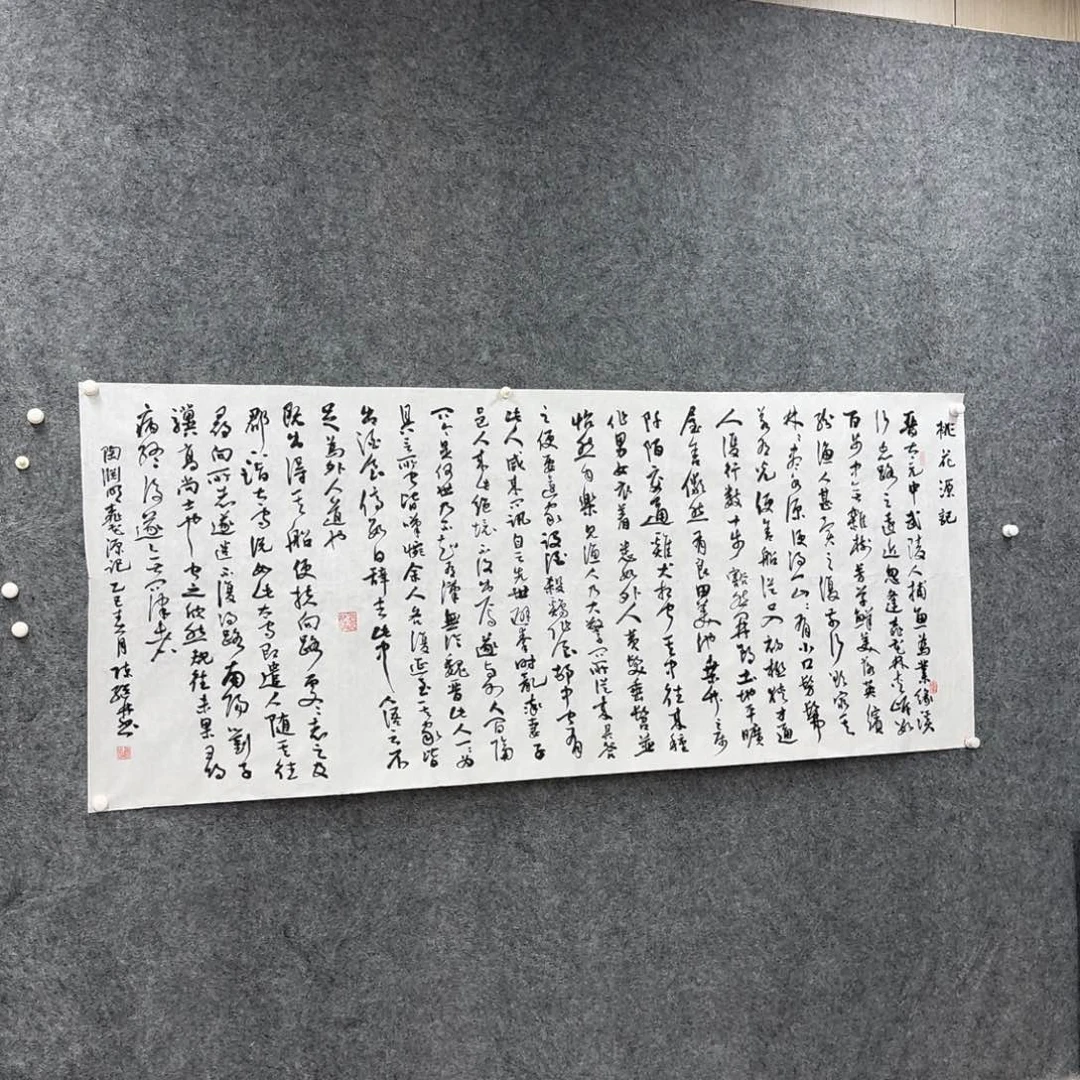 桃花源記
晉太元中武陵人捕魚為業緣溪
行忘路之遠近忽逢桃花林夾岸數
百步中無雜樹芳草鮮美落英繽
紛漁人甚異之復前行欲窮其
林林盡水源便得一山山有小口髣髴
若有光便舍船從口入初極狹才通
人復行數十步豁然開朗土地平曠
屋舍儼然有良田美池桑竹之屬
阡陌交通雞犬相聞其中往來種
作男女衣著悉如外人黃髮垂髫並
怡然自樂見漁人乃大驚問所從來具答
之便要還家設酒殺雞作食村中聞有
此人咸來問訊自云先世避秦時亂率妻子
邑人來此絕境不復出焉遂與外人間隔
問今是何世乃不知有漢無論魏晉此人一一為
具言所聞皆嘆惋余人各復延至其家皆
出酒食停數日辭去此中人語云不
足為外人道也
既出得其船便扶向路處處志之及
郡詣太守說如此太守即遣人隨其往
尋向所志遂迷不復得路南陽劉子
驥高尚士也聞之欣然規往未果尋
病終後遂無問津者
陶淵明桃花源記 乙巳 月 陳 書